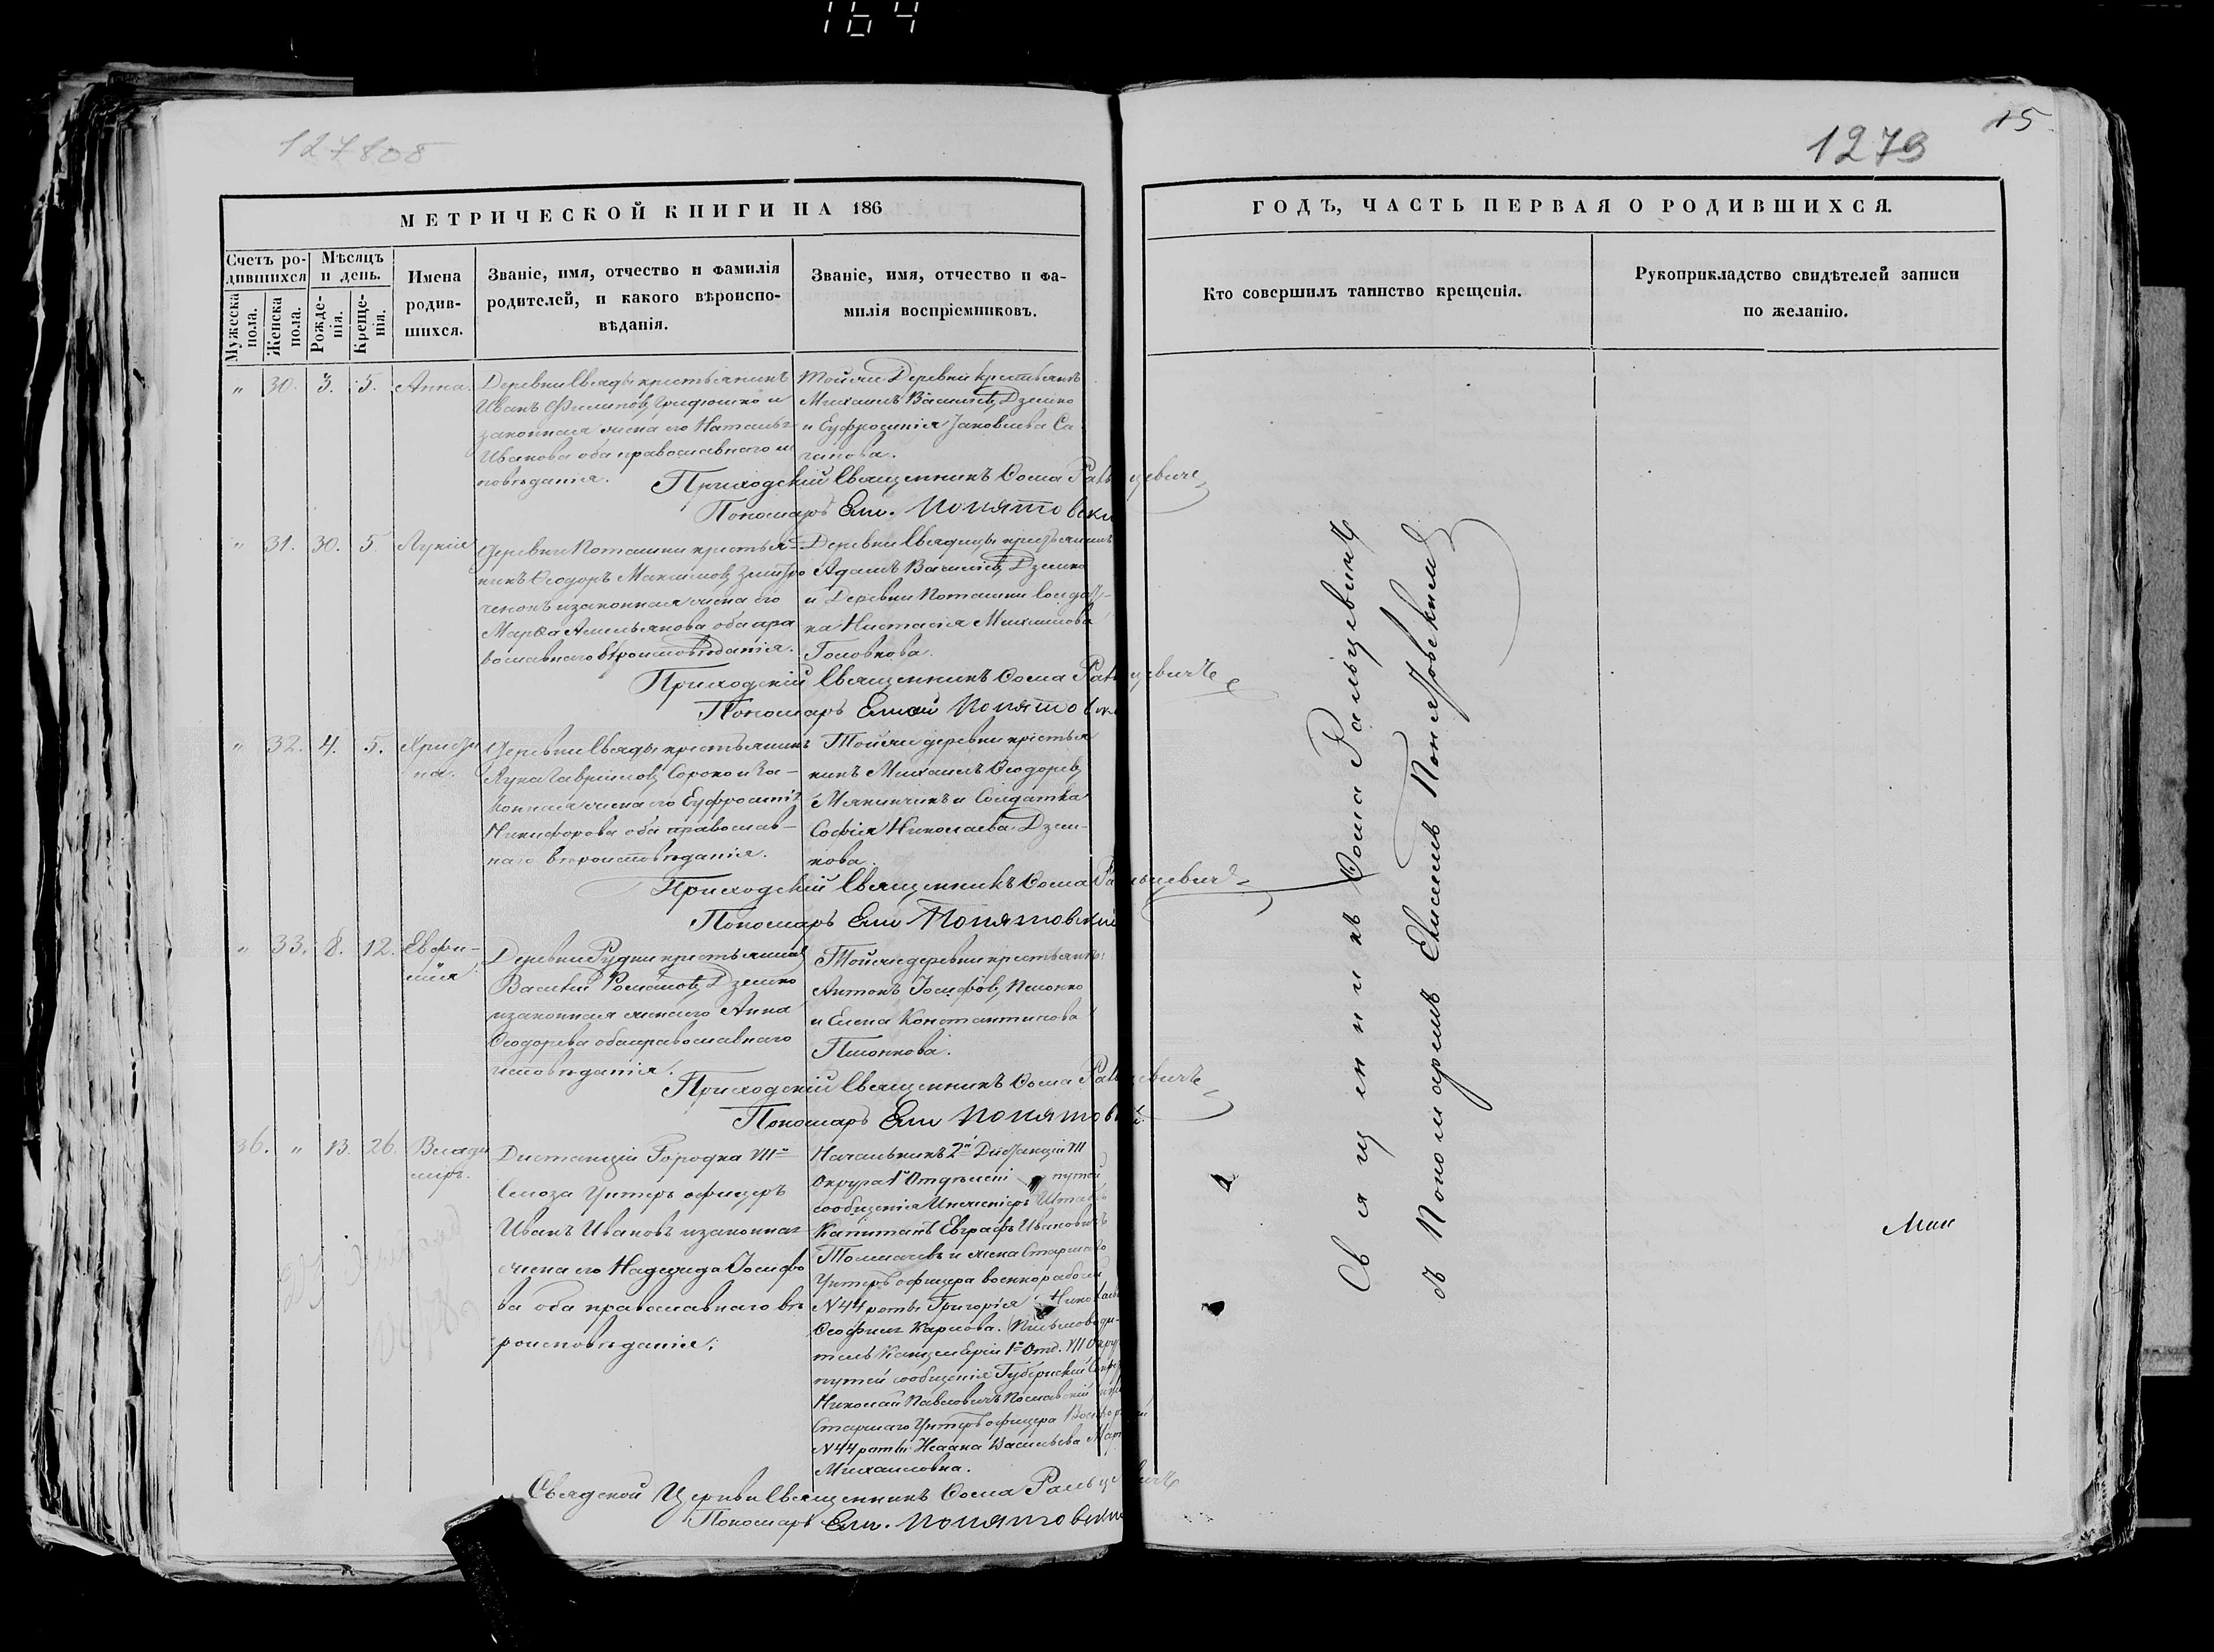 164
127808
1279
15
МЕТРИЧЕСКОЙ КНИГИ НА 186
ГОДЪ, ЧАСТЬ ПЕРВАЯ О РОДИВШИХСЯ.
Счетъ ро-
дившихся
Мѣсяцъ
и день.
Мужеска
пола.
Женска
пола.
Рожде-
нія.
Креще-
нія.
Имена
родив-
шихся.
Званіе, имя, отчество и фамилія
родителей, и какого вѣроиспо-
вѣданія.
Званіе, имя, отчество и фа-
милія воспріемниковъ.
Кто совершилъ таинство крещенія.
Рукоприкладство свидѣтелей записи
по желанію.
" 30. 3. 5. Анна.
Деревни Свяды крестьянинъ
Иванъ Филиповъ и
законная жена его Наталья
Иванова оба православнаго ис
повѣданія.
Тойже Деревни крестьянинъ
Михаилъ Васильевъ Дземко
и Еуфросинія Яковлева Са
Приходскій Священникъ Ѳома Ральцевичъ
Пономарь Ем. Понятовскій
" 31. 30. 5. Лукія
Деревни Поташни крестья-
нинъ Ѳеодоръ Максимовъ Змитро
ченокъ и законная жена его
Марѳа Амельянова оба пра
вославнаго вѣроисповѣданія.
Деревни Свядицы крестьянинъ
Адамъ Васильевъ Дземко
и Деревни Поташни Солдат-
ка Настасія Михайлова
Головкова.
Приходскій Священникъ Ѳома Ральцевичъ
Пономарь Понятовскій
" 32. 4. 5. Христи
на.
Деревни Свяды крестьянинъ
Лука Гавриловъ Сороко и за-
конная жена его Еуфросинія
Никифорова оба православ-
наго вѣроисповѣданія.
Тойже деревни крестья
нинъ Михаилъ Ѳеодоровъ
и Солдатка
Софія Николаева Дзем-
кова.
Приходскій Священникъ Ѳома Ральцевичъ
Пономарь Ем Понятовскій
" 33. 8. 12. Евфи-
мія
Деревни Рудни крестьянинъ
Василій Романовъ Дземко
и законная жена его Анна
Ѳеодорова оба православнаго
исповѣданія.
Тойже деревни крестьянинъ
Антонъ Іосифовъ
и Елена Константинова
Приходскій Священникъ Ѳома Ральцевичъ
Пономарь Ем Понятовскій
36. " 13. 26. Влади
міръ.
Дистанціи Городка VII
Шлюза Унтеръ офицеръ
Иванъ Ивановъ и законная
жена его Надежда Іосифо
ва оба православнаго вѣ
роисповѣданія.
Начальникъ 2й Дистанціи VII
Округа 1 Отдѣленія путей
сообщенія Инженеръ Штабсъ
Капитанъ Евграфъ Ивановичъ
Толмачевъ и жена Старшаго
Унтеръ офицера военнорабочей
N 44 роты Григорія
Карпова. Письмоводи-
тель Канцеляріи 1 Отд. VII Округ
путей сообщенія Губернскій Секр
Николай Павловичъ
Старшаго Унтеръ офицера
N 44 роты Васильева
Михайловна.
Свядской Церкви Священникъ Ѳома Ральцевичъ
Пономарь Ем. Понятовскій
Священникъ Ѳома Ральцевичъ
съ Пономаремъ Понятовскимъ